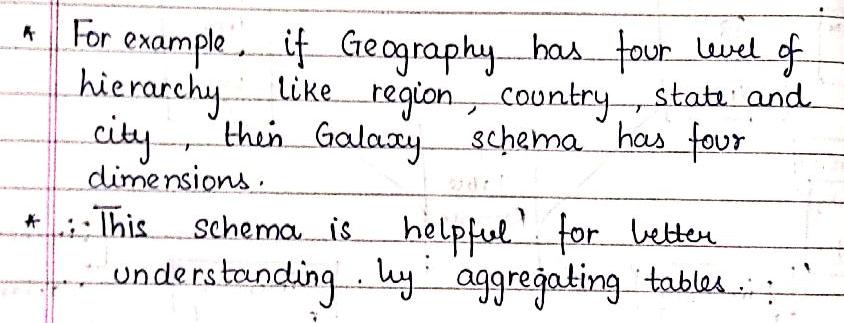 * For example, if Geography has four level of
hierarchy like region, country, state and
city, then Galaxy schema has four
dimensions.
* This schema is helpful for better
understanding. by aggregating tables.